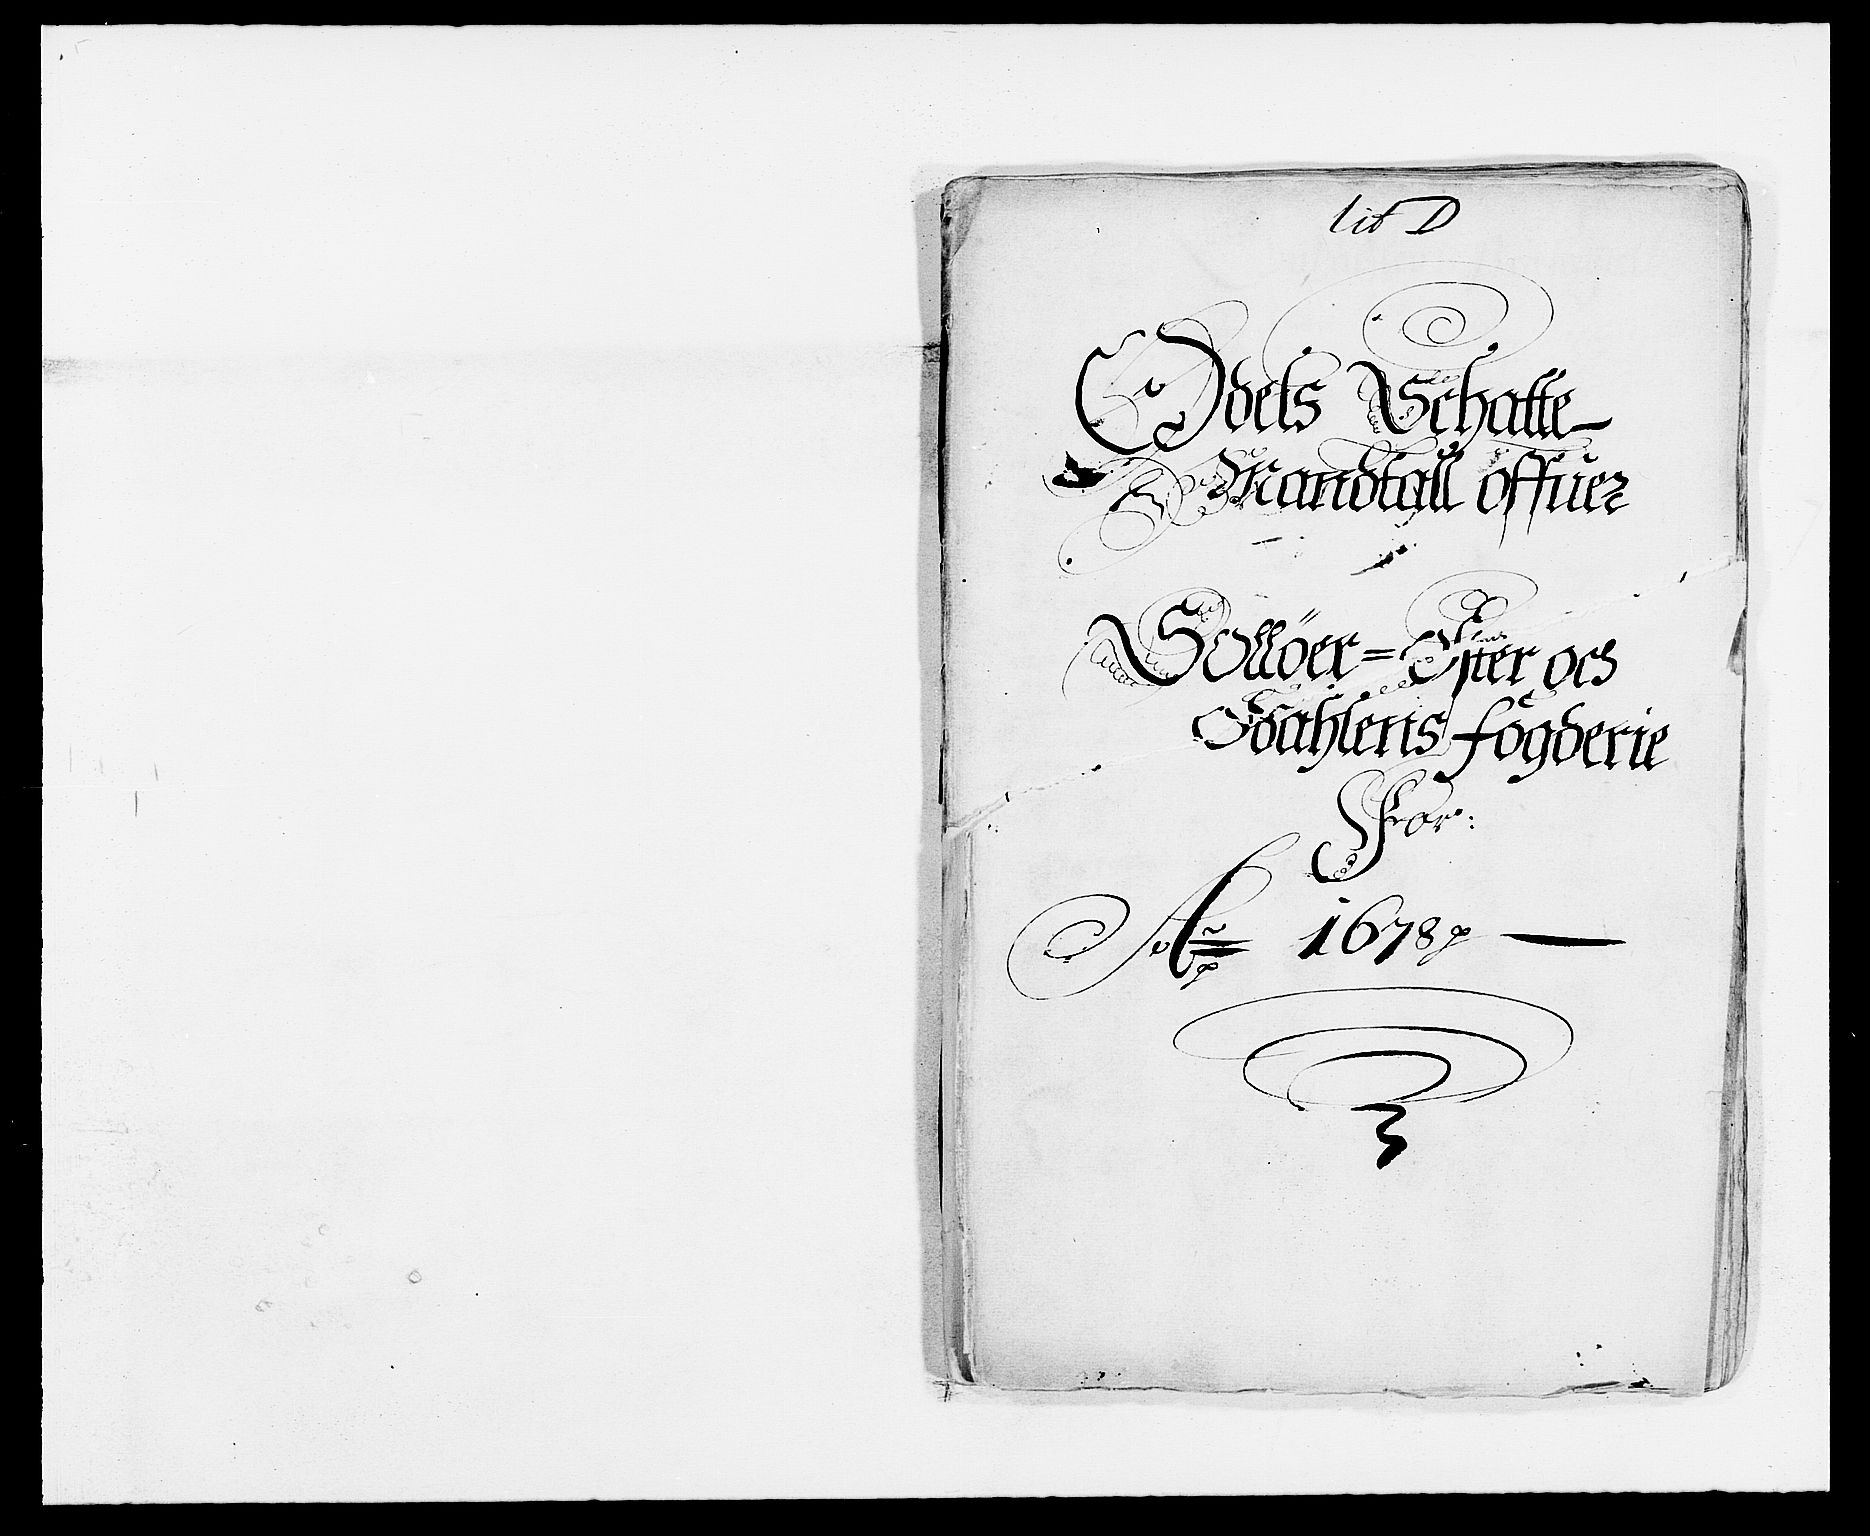 lit D
Odels Schatte-
Mandtall offuer
Sollöer = Öster och
Ödahlens fögderie
For:
Ao 1678